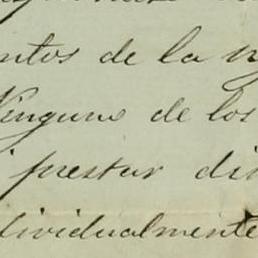 ntos de la
Ninguno de los
prestar
dividualmente